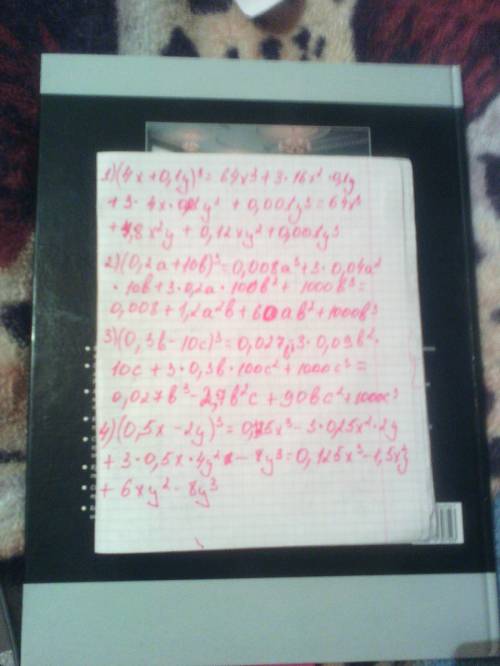 1)(4x+0,1y)³= 64x³+3·16x²·0,1y
+3·4x·0,01y²+0,001y³=64x³
+4,8x²y+0,12xy²+0,001y³
2)(0,2a+10b)³=0,008a³+3·0,04a²
·10b+3·0,2a·100b²+1000b³=
0,008+1,2a²b+60ab²+1000b³
3)(0,3b-10c)³=0,027b³-3·0,09b²·
10c+3·0,3b·100c²+1000c³=
0,027b³-2,7b²c+90bc²+1000c³
4)(0,5x-2y)³=0,125x³-3·0,25x²·2y
+3·0,5x·4y²-8y³=0,125x³-1,5x²y
+6xy²-8y³